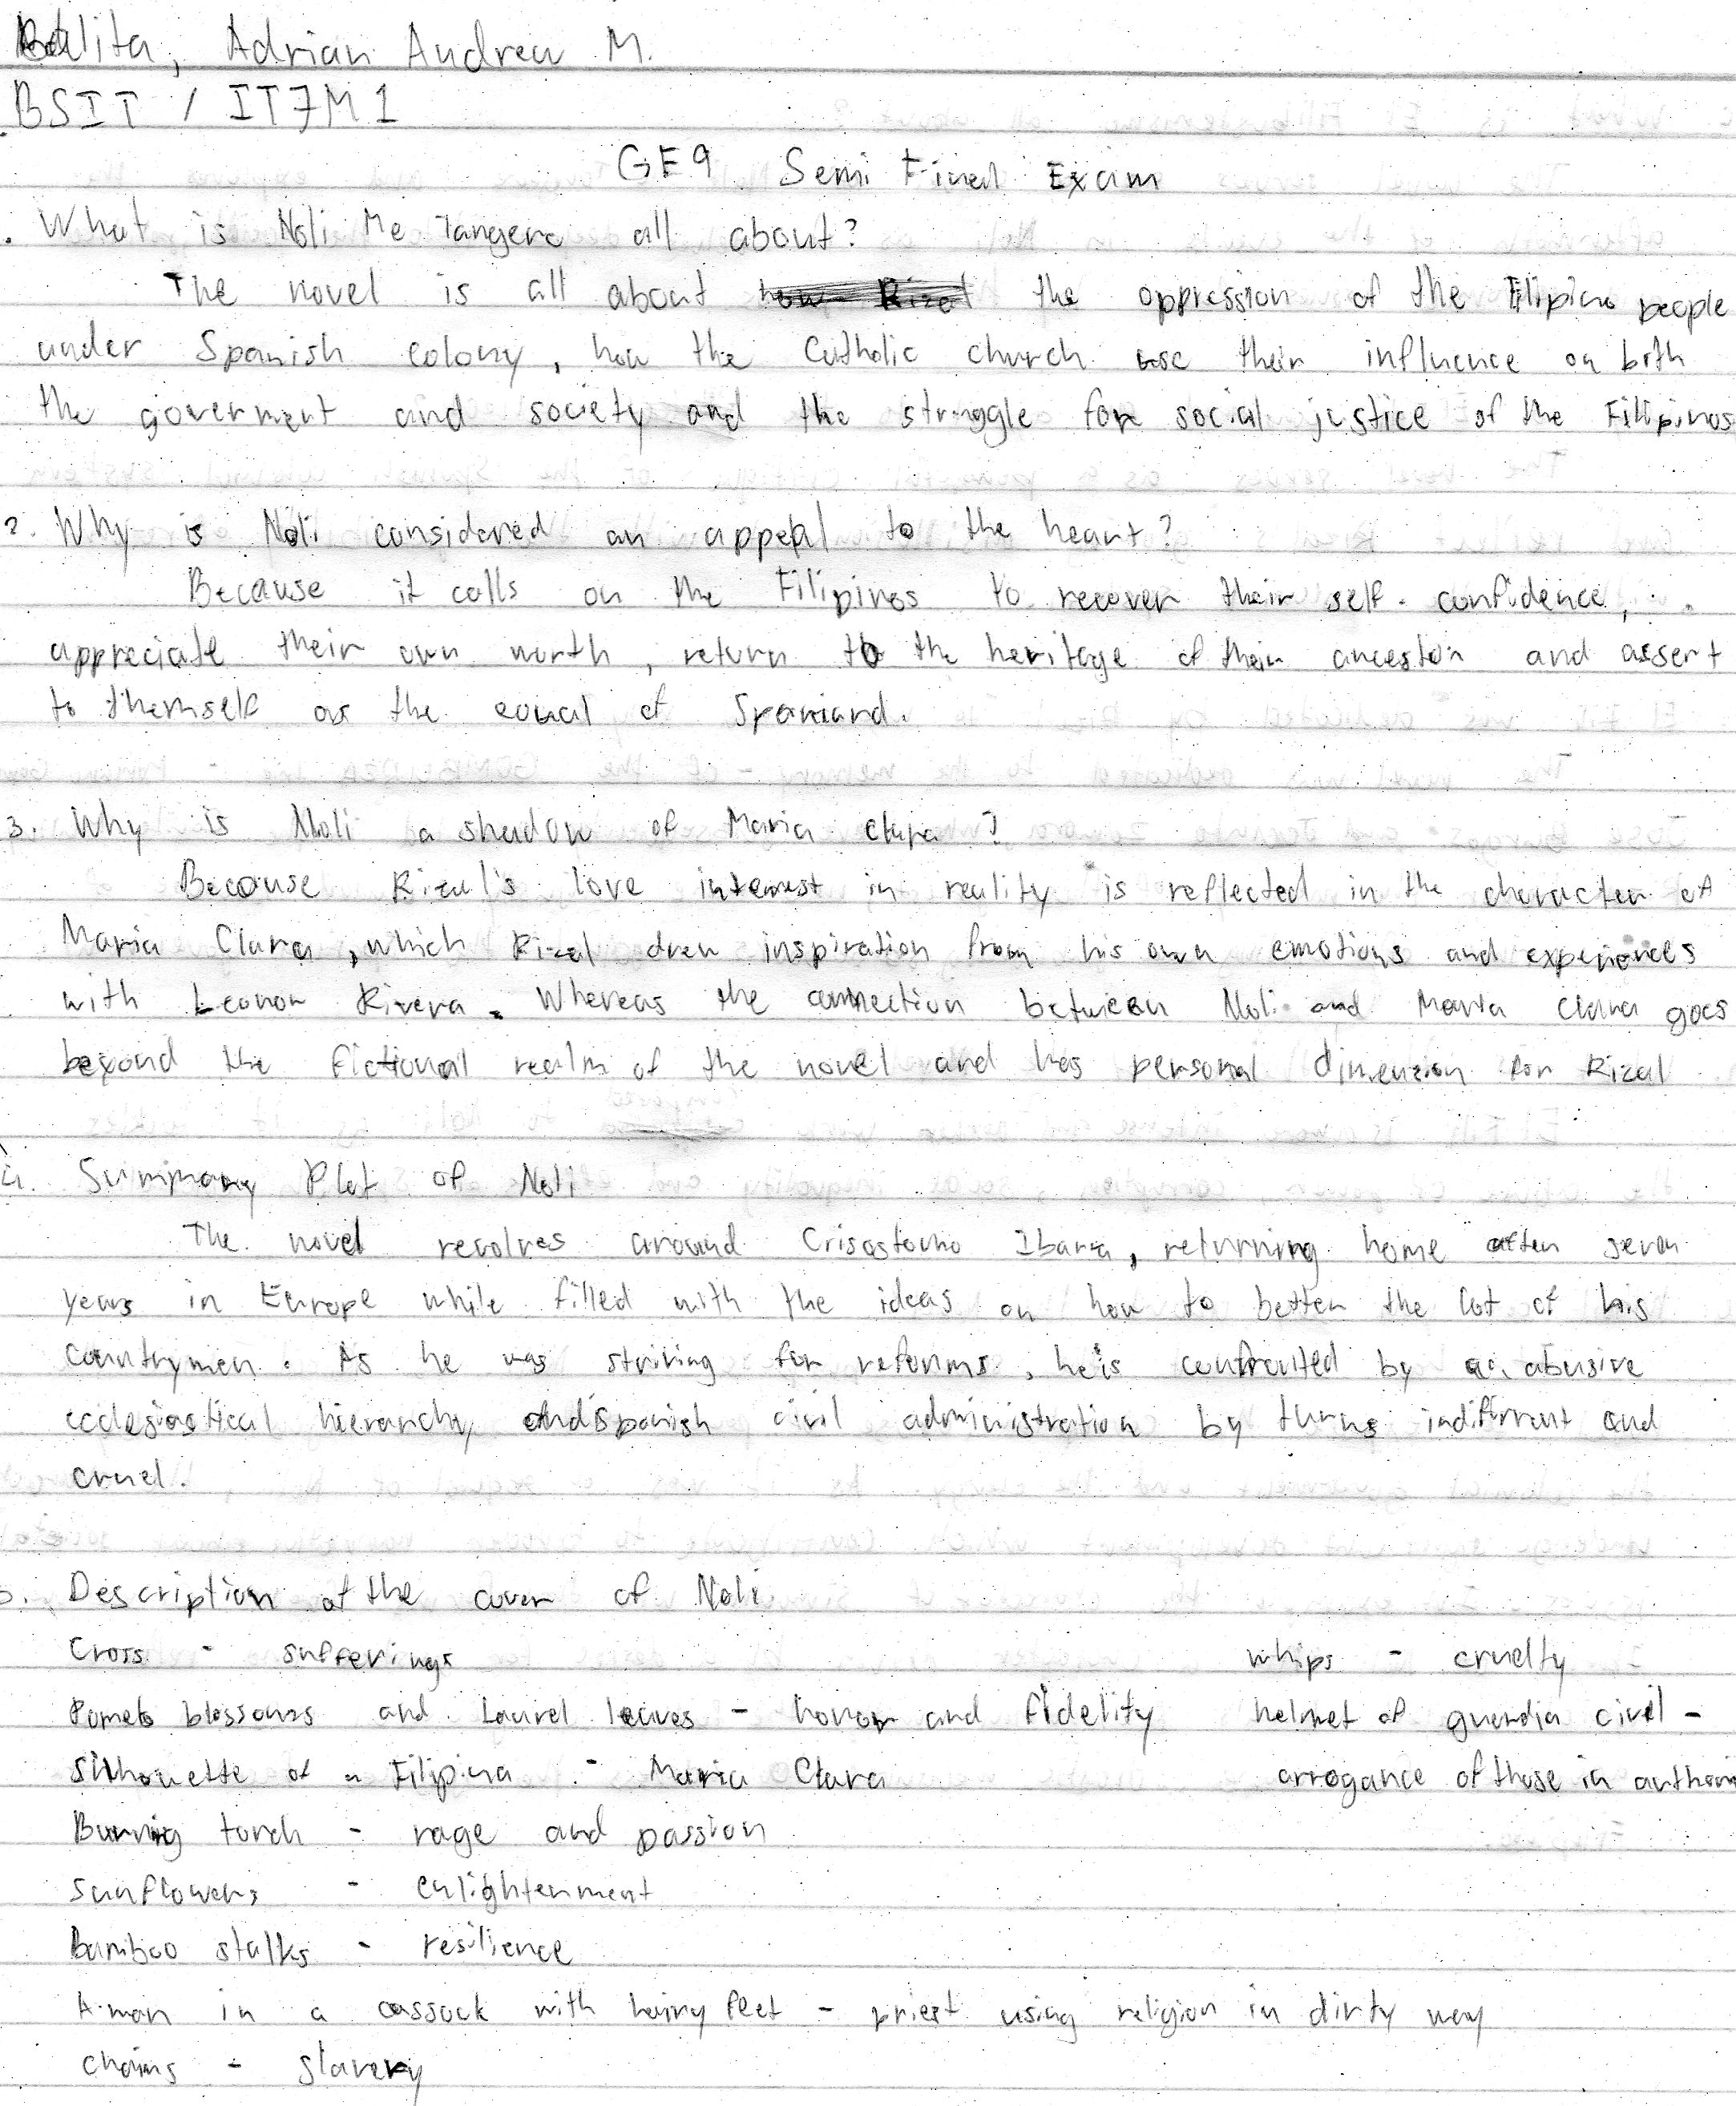 Balita, Adrian Andrew M.
BSIT / IT7M1
GE9 Semi Final Exam
. What is Noli Me Tangere all about?
The novel is all about the oppression of the Filipino people
under Spanish colony, how the Catholic church use their influence on both
the goverment and society and the struggle for social justice of the Filipinos
2. Why is Noli considered an appeal to the heart?
Because it calls on the Filipinos to recover their self-confidence,
appreciate their own worth, return to the heritage of their ancestor and assert
to themself as the equal of Spaniard.
3. Why is Noli a shadow of Maria Clara?
Because Rizal's love interest in reality is reflected in the character of
Maria Clara, which Rizal drew inspiration from his own emotions and experiences
with Leonor Rivera. Whereas the connection between Noli and Maria Clara goes
beyond the fictional realm of the novel and has personal dimenzion for Rizal
4. Summary Plot of Noli
The novel revolves around Crisostomo Ibarra, returning home after seven
years in Europe while filled with the ideas on how to better the lot of his
countrymen. As he was striving for reforms, he is confronted by an abusive
ecclesiastical hierarchy and Spanish civil administration by turns indifferent and
cruel.
5. Description of the cover of Noli
Cross - sufferings
Pomelo blossoms and Laurel leaves - honor and fidelity
Silhouette of a Filipina - Maria Clara
Burning torch - rage and passion
Sunflowers - enlightenment
Bamboo stalks - resilience
A man in a cassock with hairy feet - priest using religion in dirty way
chains - slavery
whips - cruelty
helmet of guardia civil -
arrogance of those in